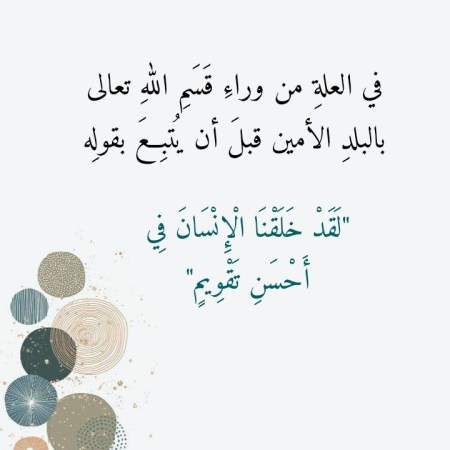 في العلةِ من وراءِ قَسَمِ اللهِ تعالى
بالبلدِ الأمين قبلَ أن يُتبِعَ بقولِه
"لَقَدْ خَلَقْنَا الْإِنْسَانَ فِي
أَحْسَنِ تَقْوِيمٍ"